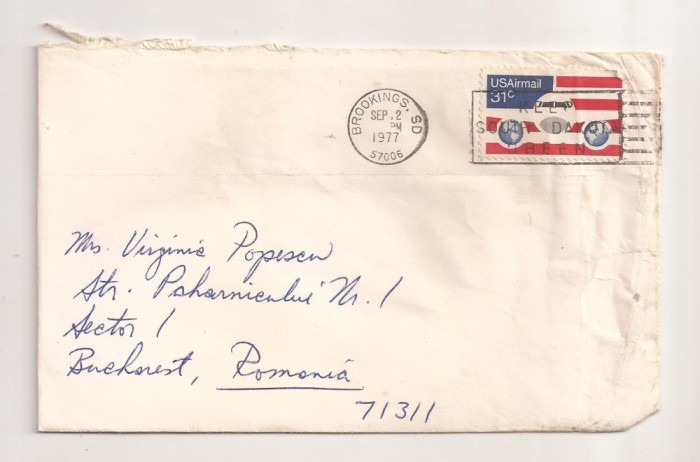 USAirmail
31c
KEEP
SOUTH DAKOTA
GREEN
BROOKINGS, SD
SEP. 2
PM
1977
57006
Mrs. Virginia Popescu
Str. Paharnicului Nr. 1
Sector 1
Bucharest, Romania
71311